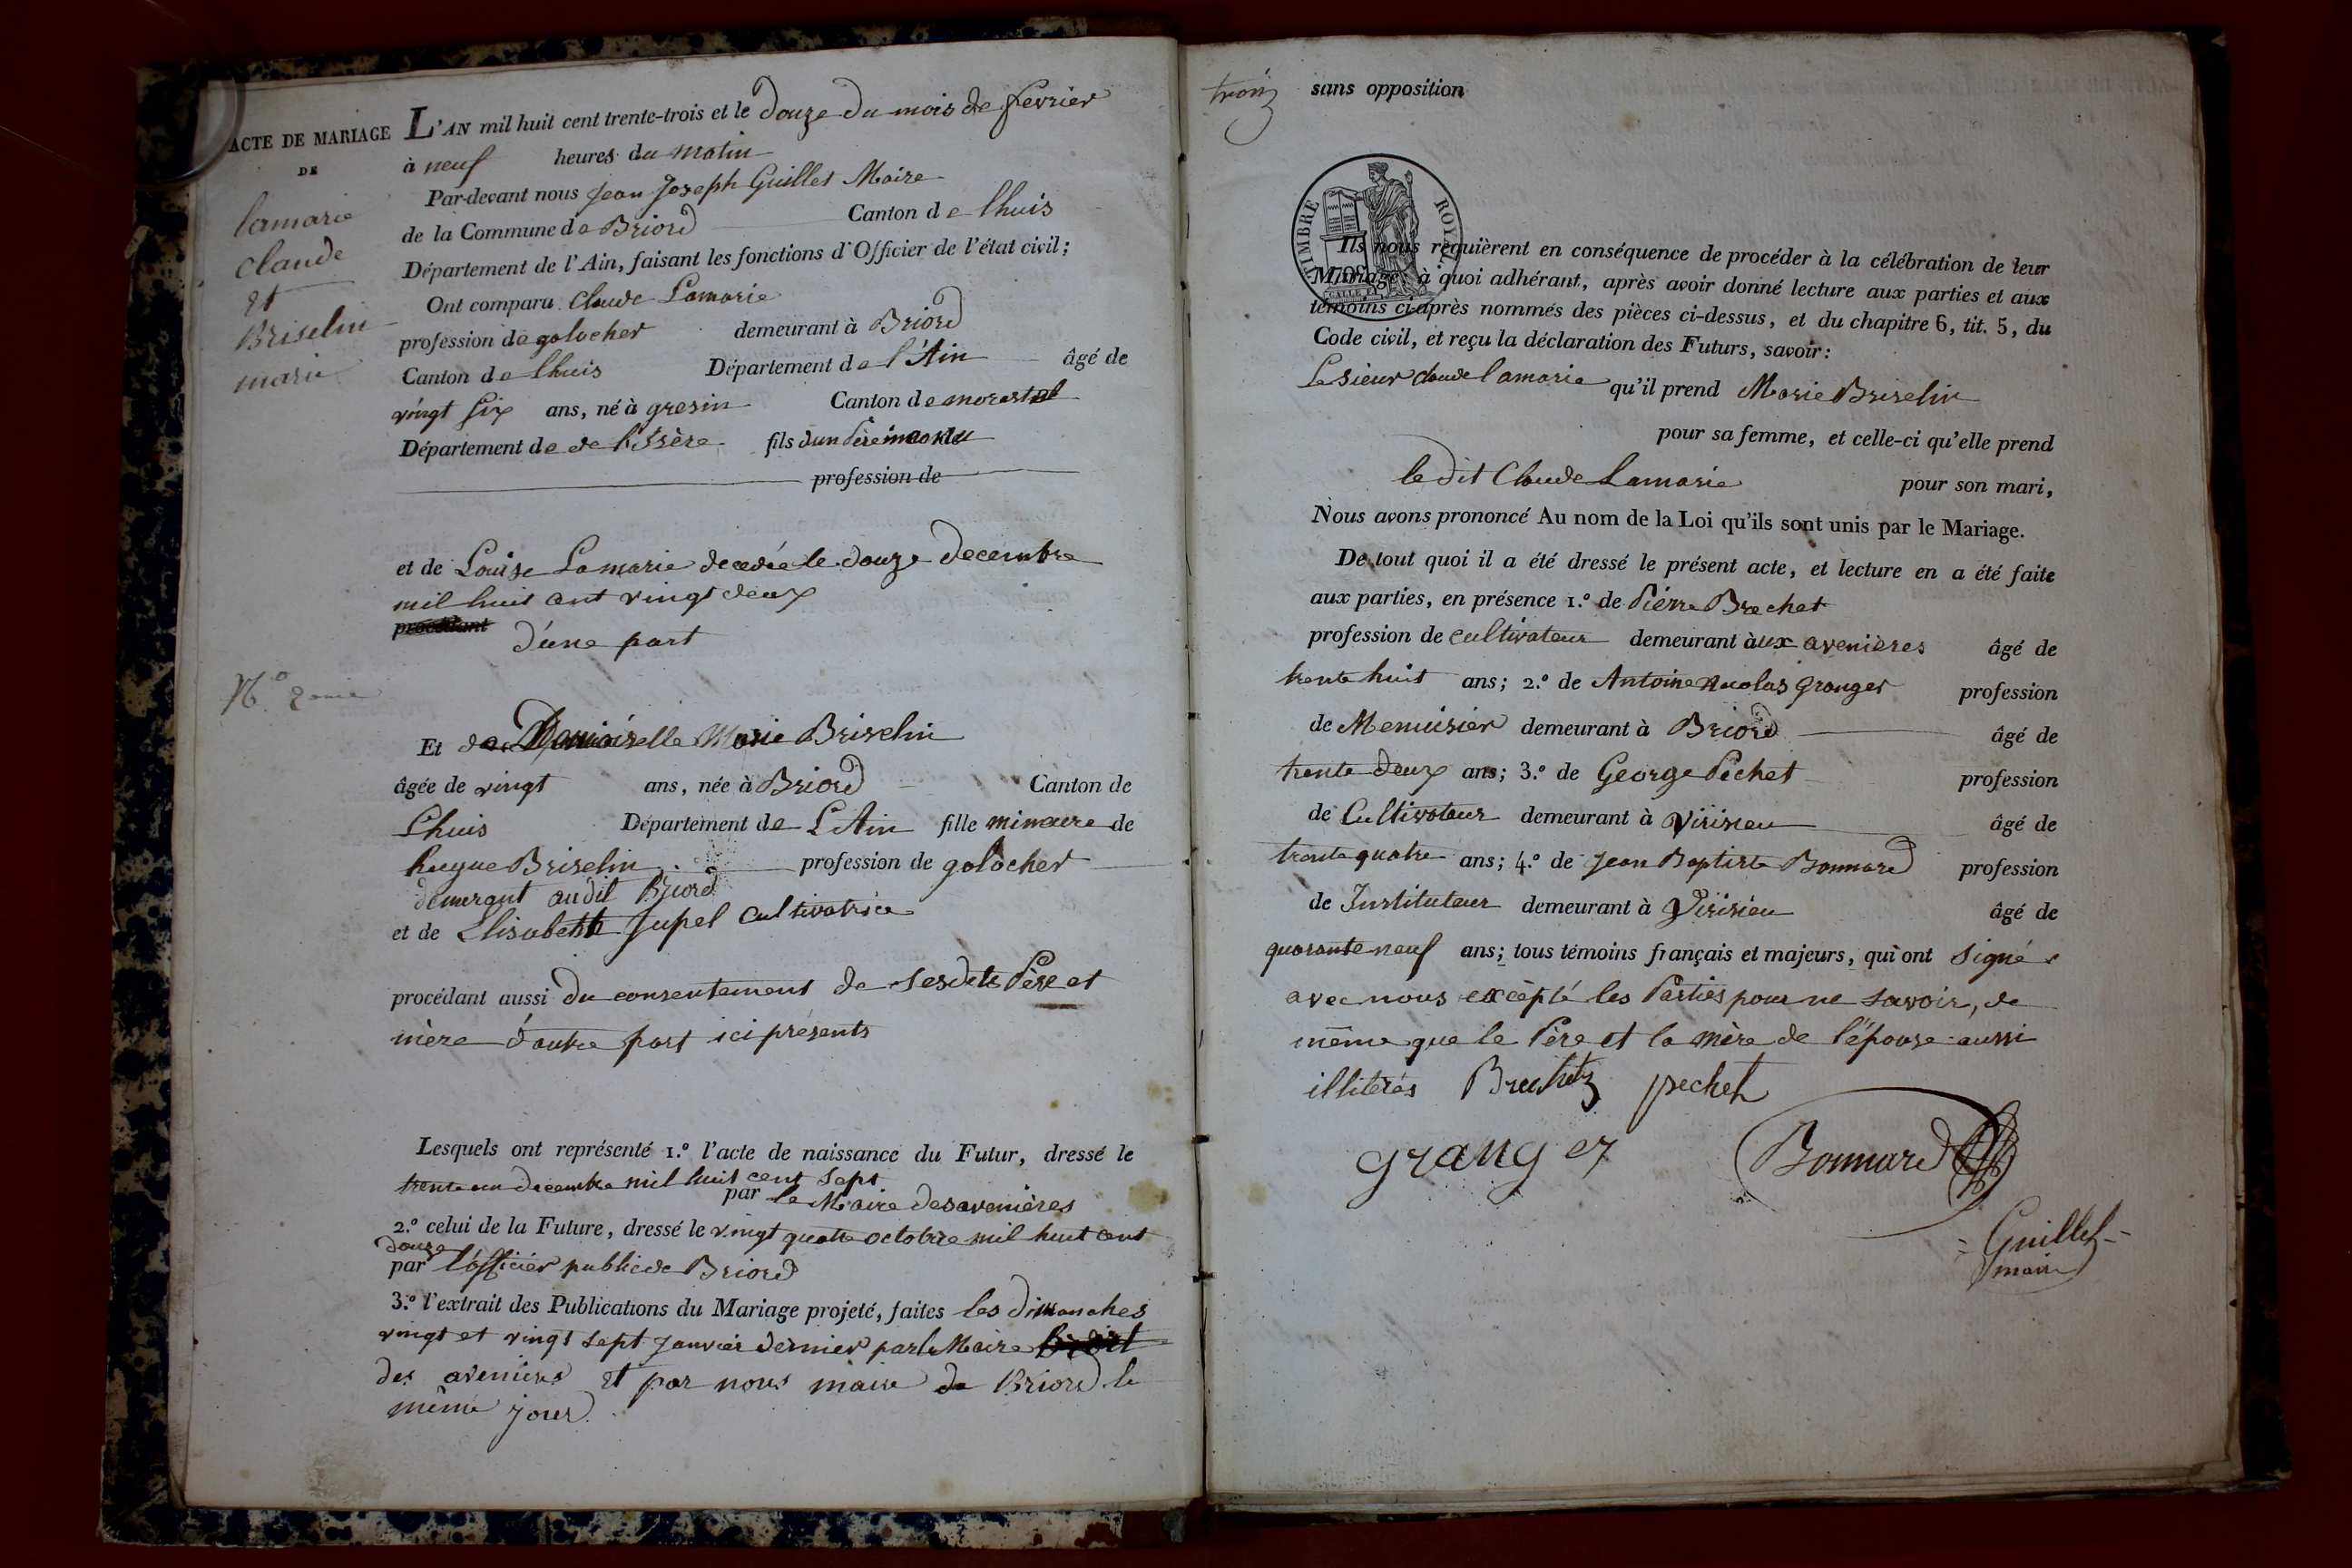 ACTE DE MARIAGE
DE
lamarie
claude
et
Briselin
marie
L'AN mil huit cent trente-trois et le douze du mois de fevrier
à neuf heures du matin
Par-devant nous jean Joseph Guillet Maire
de la Commune de Briord Canton de lhuis
Département de l'Ain, faisant les fonctions d'Officier de l'état civil;
Ont comparu Claude Lamarie
profession de galocher demeurant à Briord
Canton de lhuis Département de l'Ain âgé de
vingt six ans, né à gresin Canton de morestel
Département de de l'Isère fils d'un Père inconu
profession de
et de Louise Lamarie decedée le douze decembre
mil huit cent vingt deux
procédant d'une part
N.º
Et de Demoiselle Marie Briselin
âgée de vingt ans, née à Briord Canton de
Lhuis Département de L'Ain fille mineure de
hugue Briselin profession de galocher
demeurant audit Briord
et de Elisabeth Jupel Cultivatrice
procédant aussi du consentement de sesdits Père et
mère d'autre part ici présents
Lesquels ont représenté 1.º l'acte de naissance du Futur, dressé le
trente un decembre mil huit cent sept
par le Maire des avenières
2.º celui de la Future, dressé le vingt quatre octobre mil huit cent
douze
par l'officier public de Briord
3.º l'extrait des Publications du Mariage projeté, faites les dimanches
vingt et vingt sept janvier dernier par le Maire
des avenieres et par nous maire de Briord le
même jour.
trois sans opposition
TIMBRE ROYAL
Ils nous requièrent en conséquence de procéder à la célébration de leur
Mariage, à quoi adhérant, après avoir donné lecture aux parties et aux
témoins ci-après nommés des pièces ci-dessus, et du chapitre 6, tit. 5, du
Code civil, et reçu la déclaration des Futurs, savoir:
Le sieur claude lamarie qu'il prend Marie Briselin
pour sa femme, et celle-ci qu'elle prend
le dit Claude Lamarie pour son mari,
Nous avons prononcé Au nom de la Loi qu'ils sont unis par le Mariage.
De tout quoi il a été dressé le présent acte, et lecture en a été faite
aux parties, en présence 1.º de Pierre Brechet
profession de cultivateur demeurant àux avenières âgé de
trente huit ans; 2.º de Antoine Nicolas Granger profession
de Menuisier demeurant à Briord âgé de
trente deux ans; 3.º de George Péchet profession
de Cultivateur demeurant à Virisieu âgé de
trente quatre ans; 4.º de Jean Baptiste Bonnard profession
de Instituteur demeurant à Virisieu âgé de
quarante neuf ans; tous témoins français et majeurs, qui ont signé
avec nous excèpté les Parties pour ne savoir, de
même que le Père et la mère de l'épouse aussi
illitérés Brechet pechet
granger Bonnard
Guillet
maire